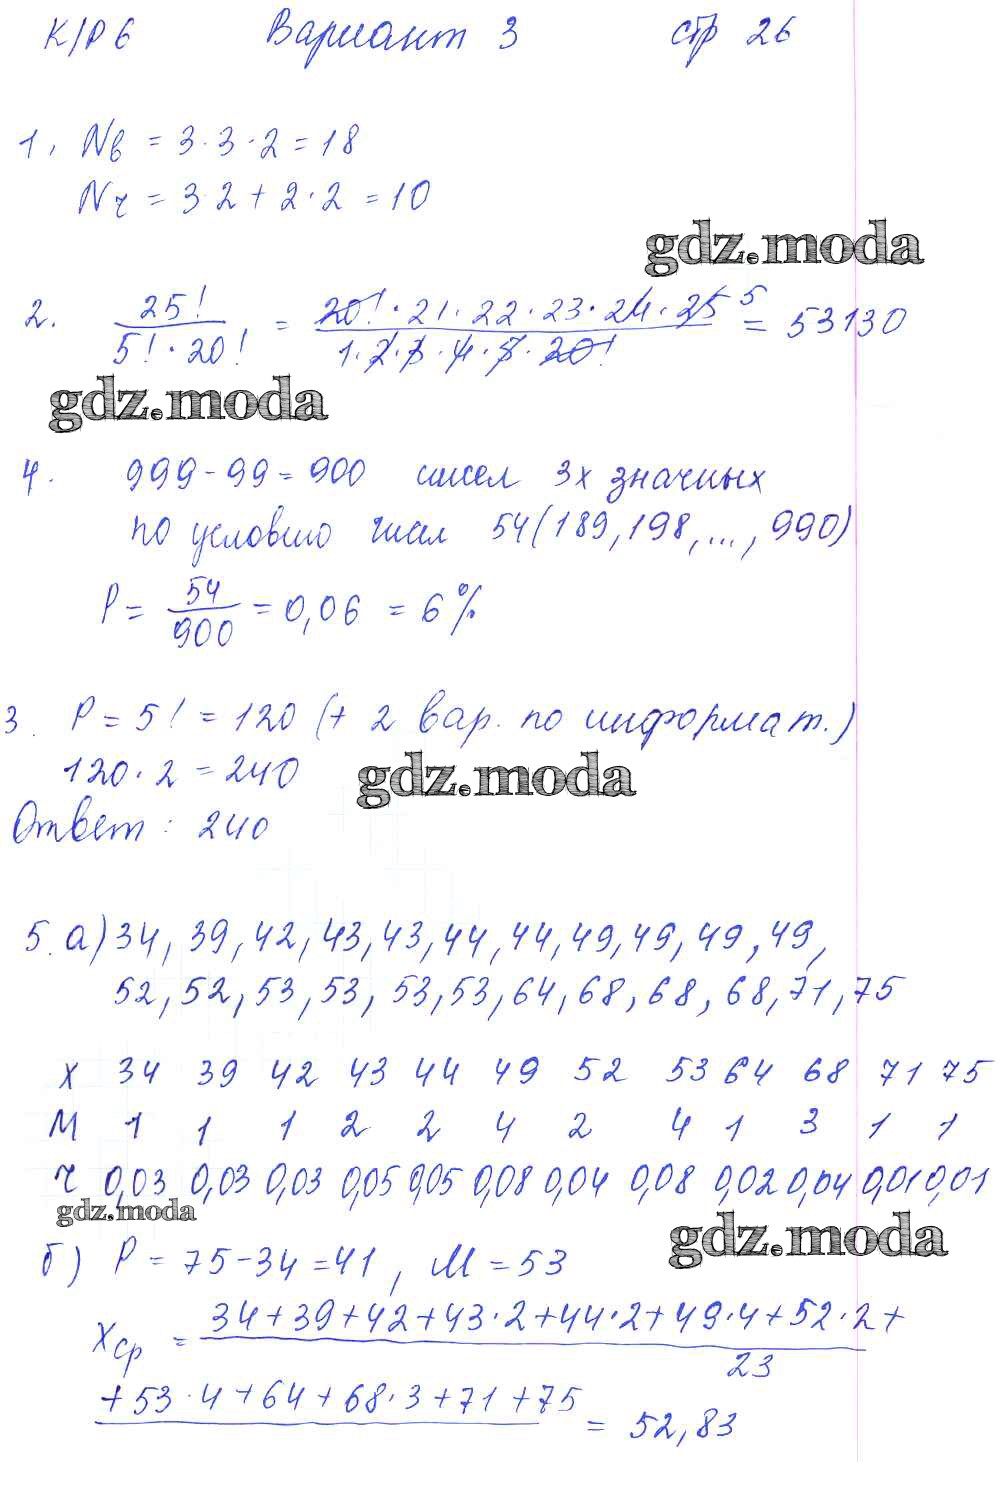 К/Р 6 Вариант 3 стр 26
1. Nв = 3·3·2 = 18
Nч = 3 2 + 2·2 = 10
gdz.moda
2. 25! / 5!·20! = 20!·21·22·23·24·25 5 / 1·2·3·4·5·20! = 53130
gdz.moda
4. 999-99=900 чисел 3х значных
по условию чисел 54(189,198,...,990)
P = 54/900 = 0,06 = 6%
3. P = 5! = 120 (+ 2 вар. по информат.)
120·2 = 240
gdz.moda
Ответ: 240
5. а) 34, 39, 42, 43, 43, 44, 44, 49, 49, 49, 49,
52, 52, 53, 53, 53, 53, 64, 68, 68, 68, 71, 75
X 34 39 42 43 44 49 52 53 64 68 71 75
M 1 1 1 2 2 4 2 4 1 3 1 1
ч 0,03 0,03 0,03 0,05 0,05 0,08 0,04 0,08 0,02 0,04 0,01 0,01
gdz.moda
gdz.moda
б) P = 75-34=41, M = 53
Xср = 34+39+42+43·2+44·2+49·4+52·2+
23
+53·4+64+68·3+71+75 = 52,83